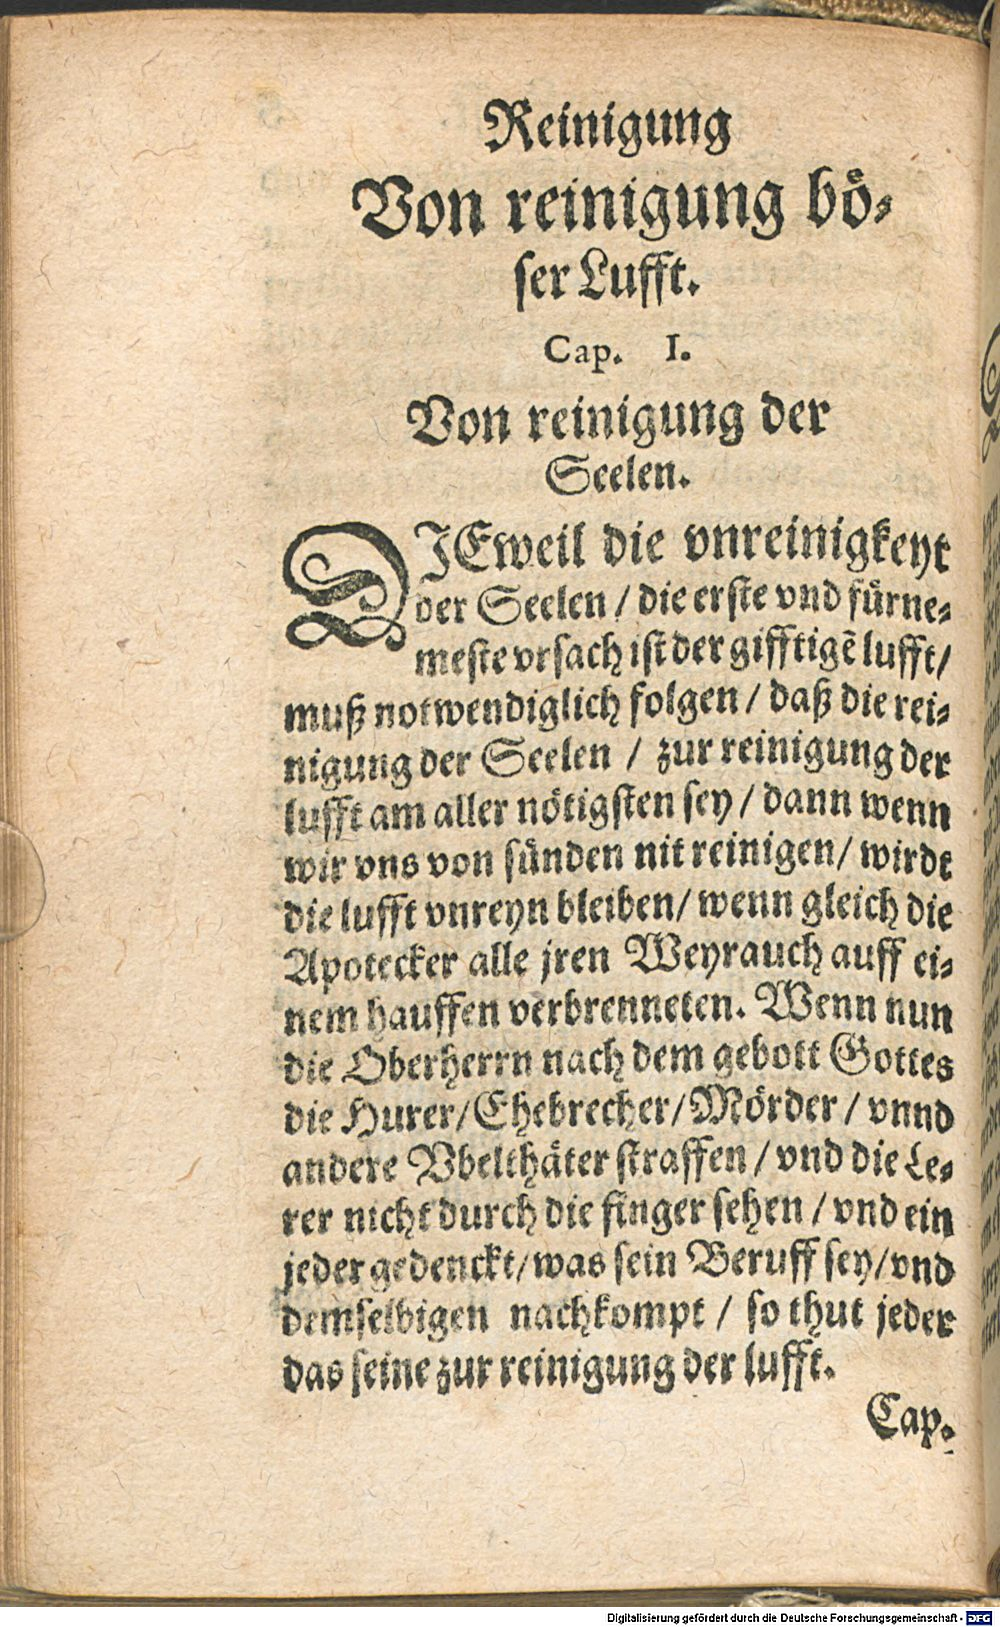 Reinigung
Von reinigung bö⸗
ser Lufft.
Cap. I.
Von reinigung der
Seelen.
DIEweil die vnreinigkeyt
der Seelen / die erste vnd fürne⸗
meste vrsach ist der gifftigē lufft/
muß notwendiglich folgen / daß die rei⸗
nigung der Seelen / zur reinigung der
lufft am aller nötigsten sey / dann wenn
wir vns von sünden nit reinigen/ wirdt
die lufft vnreyn bleiben/ wenn gleich die
Apotecker alle jren Weyrauch auff ei⸗
nem hauffen verbrenneten. Wenn nun
die Oberherrn nach dem gebott Gottes
die Hurer/Ehebrecher/Mörder / vnnd
andere Vbelthäter straffen / vnd die Le⸗
rer nicht durch die finger sehen / vnd ein
jeder gedenckt/was sein Beruff sey/vnd
demselbigen nachkompt / so thut jeder
das seine zur reinigung der lufft.
Cap.
Digitalisierung gefördert durch die Deutsche Forschungsgemeinschaft - DFG